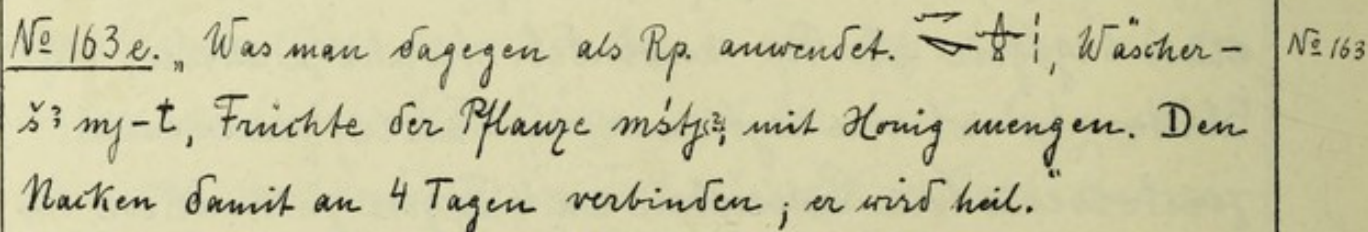 № 163e. „Was man dagegen als Rp. anwendet. , Wäscher- № 163
šꜣmj-t, Früchte der Pflanze mśtj, mit Honig mengen. Den
Nacken damit an 4 Tagen verbinden; er wird heil.“